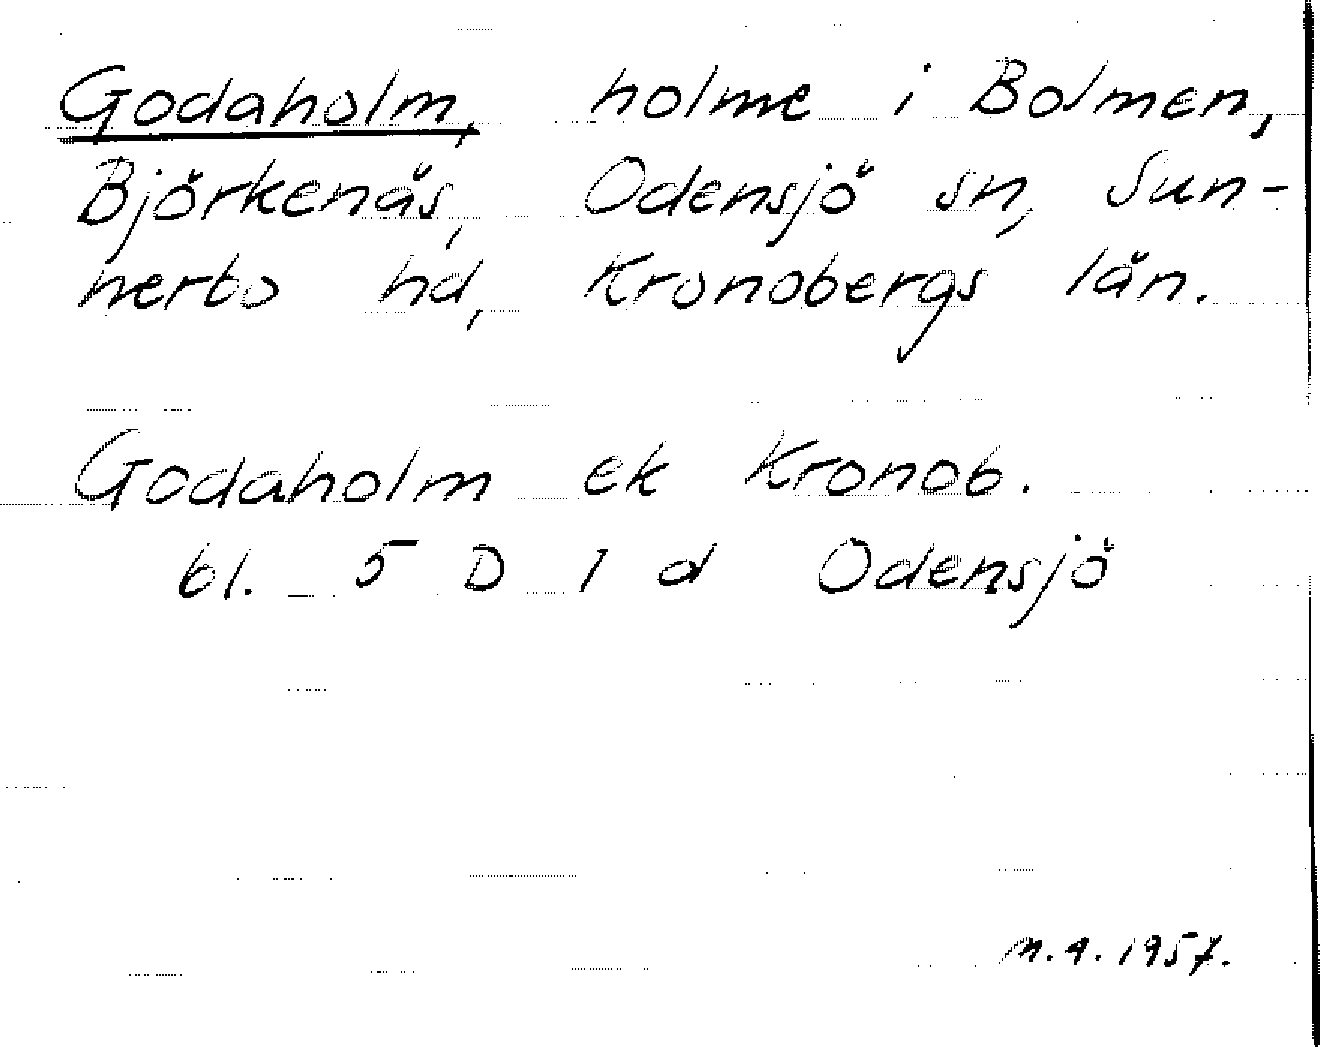 Godaholm, holme i Bolmen,
Björkenäs, Odensjö sn, Sun-
nerbo hd, Kronobergs län.
Godaholm ek Kronob.
bl. 5 D 1 d Odensjö
1957.